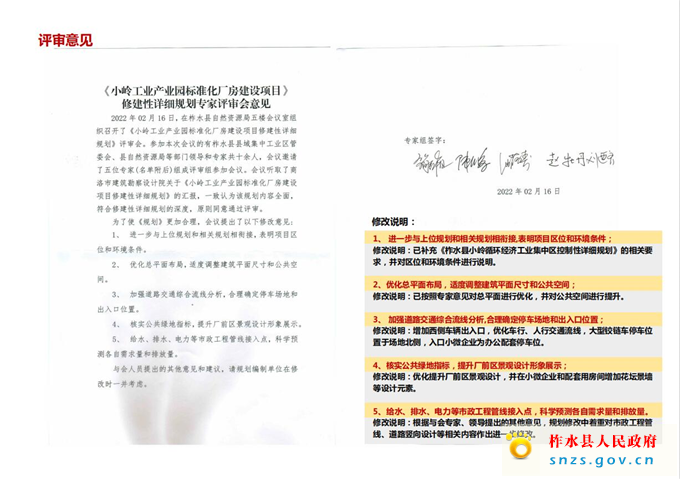 评审意见
《小岭工业产业园标准化厂房建设项目》
修建性详细规划专家评审会意见
2022 年 02 月 16 日，在柞水县自然资源局五楼会议室组
织召开了《小岭工业产业园标准化厂房建设项目修建性详细
规划》评审会。参加本次会议的有柞水县县域集中工业区管
委会、县自然资源局等部门领导和专家共十余人，会议邀请
了五位专家(名单附后)组成评审组参加会议。会议听取了商
洛市建筑勘察设计院关于《小岭工业产业园标准化厂房建设
项目修建性详细规划》的汇报，一致认为该规划内容全面，
符合修建性详细规划的深度，原则同意通过评审。
为了使《规划》更加合理，会议提出了以下修改意见：
1、 进一步与上位规划和相关规划相衔接,表明项目区位
和环境条件。
2、 优化总平面布局，适度调整建筑平面尺寸和公共空
间。
3、 加强道路交通综合流线分析,合理确定停车场地和
出入口位置。
4、 核实公共绿地指标,提升厂前区景观设计形象展示。
5、 给水、排水、电力等市政工程管线接入点，科学预
测各自需求量和排放量。
与会人员提出的其他意见和建议，请规划编制单位在修
改时一并考虑。
专家组签字：
2022 年 02 月 16 日
修改说明：
1、 进一步与上位规划和相关规划相衔接,表明项目区位和环境条件；
修改说明：已补充《柞水县小岭循环经济工业集中区控制性详细规划》的相关要
求，并对区位和环境条件进行说明。
2、优化总平面布局，适度调整建筑平面尺寸和公共空间；
修改说明：已按照专家意见对总平面进行优化，并对公共空间进行提升。
3、 加强道路交通综合流线分析,合理确定停车场地和出入口位置；
修改说明：增加西侧车辆出入口，优化车行、人行交通流线，大型铰链车停车位
置于场地北侧，入口小微企业为办公配套停车位。
4、核实公共绿地指标，提升厂前区景观设计形象展示；
修改说明：优化提升厂前区景观设计，并在小微企业和配套用房间增加花坛景墙
等设计元素。
5、给水、排水、电力等市政工程管线接入点，科学预测各自需求量和排放量。
修改说明：根据与会专家、领导提出的其他意见，规划修改中着重对市政工程管
线、道路竖向设计等相关内容作出进一步修改。
柞水县人民政府
snzs.gov.cn